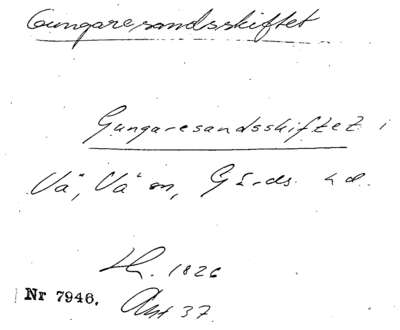 Gungaresandsskiftet
Gungaresandsskiftet i
Vä, Vä sn, Gärds hd.
Lh. 1826
Nr 7946. Akt 37.